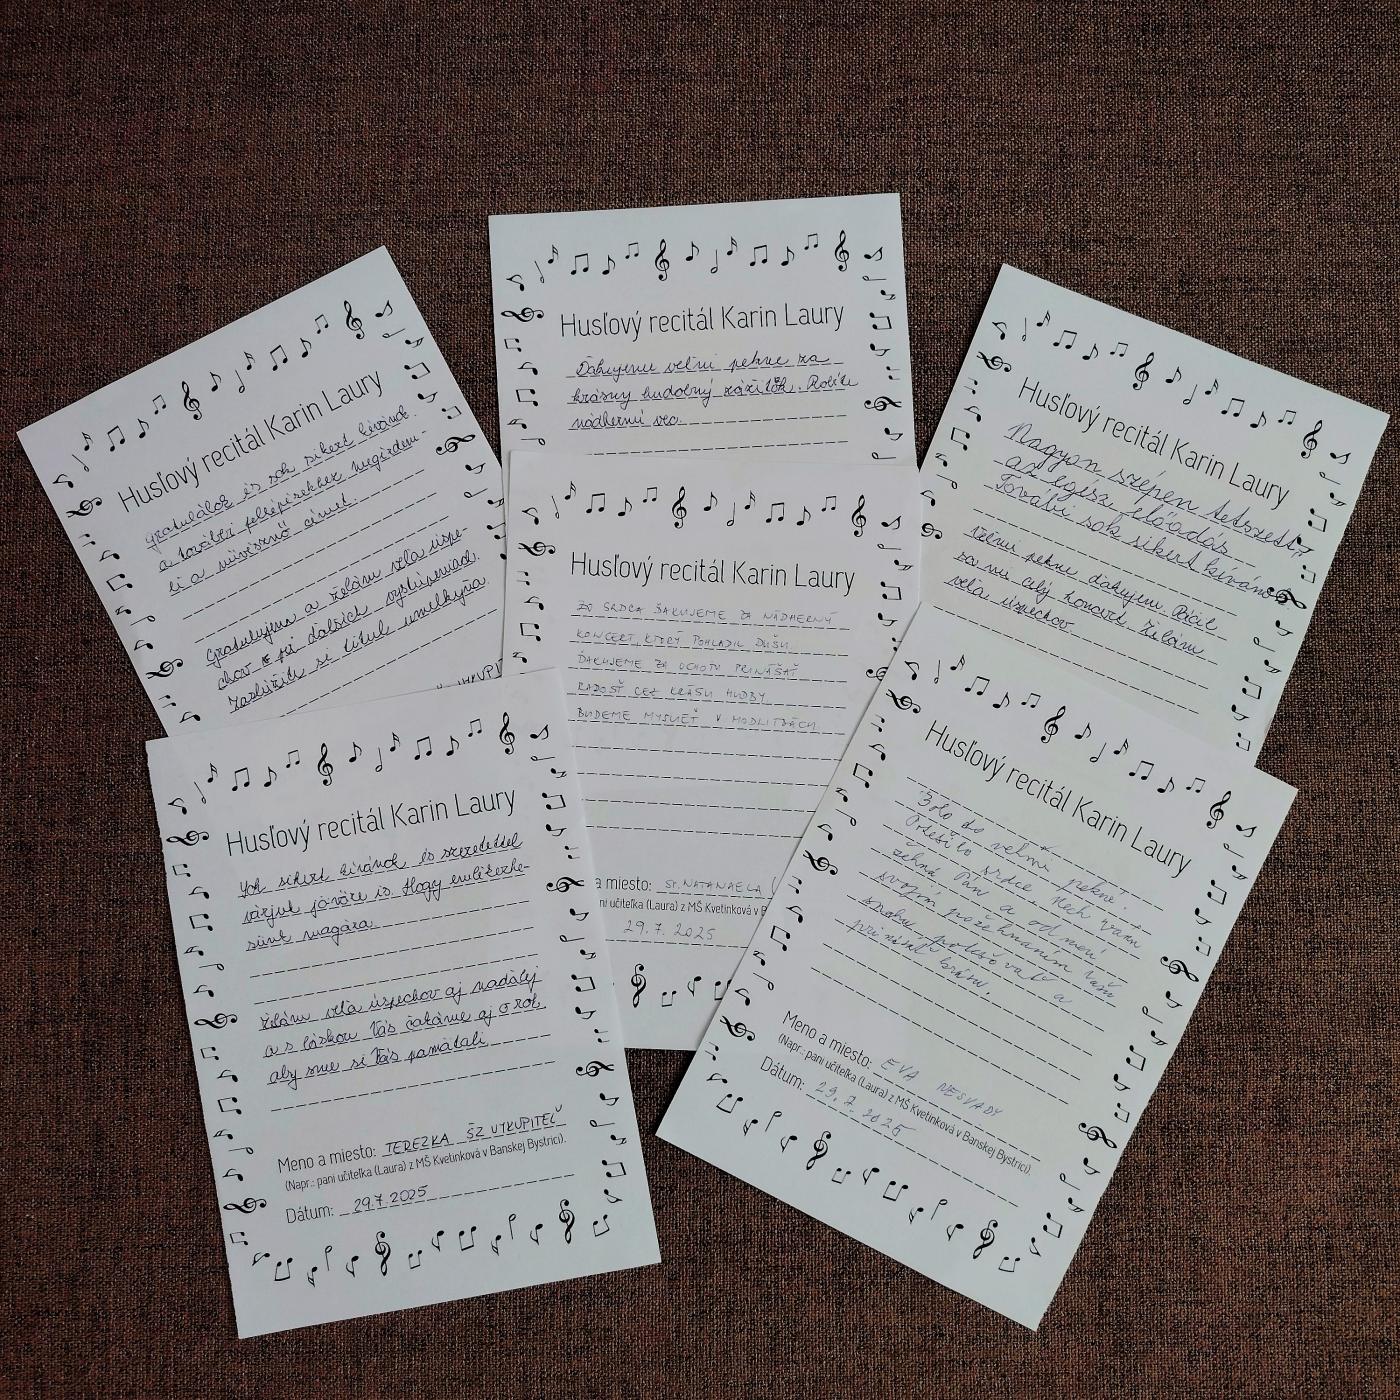 Husľový recitál Karin Laury
Gratulálok és sok sikert kívánok
a további fellépésekhez megérdem-
li a művésznő címet.
Gratulujem a želám veľa úspe-
chov pri ďalších vystúpeniach.
Zaslúžite si titul umelkyňa.
Husľový recitál Karin Laury
Ďakujeme veľmi pekne za
krásny hudobný zážitok. Robíte
nádhernú vec.
Husľový recitál Karin Laury
Nagyon szépen tetszett
az egész előadás
További sok sikert kívánok
Veľmi pekne ďakujem. Páčil
sa mi celý koncert. Želám
veľa úspechov.
Husľový recitál Karin Laury
ZO SRDCA ĎAKUJEME ZA NÁDHERNÝ
KONCERT, KTORÝ POHLADIL DUŠU.
ĎAKUJEME ZA OCHOTU PRINÁŠAŤ
RADOSŤ CEZ KRÁSU HUDBY
BUDEME MYSLIEŤ V MODLITBÁCH.
a miesto: SR. NATANAELA
pani učiteľka (Laura) z MŠ Kvetinková v B
29.7.2025
Husľový recitál Karin Laury
Sok sikert kívánok és szeretettel
várjuk jövőre is. Hogy emlékezhe-
sünk magára.
Želám veľa úspechov aj naďalej
a s láskou Vás čakáme aj o rok,
aby sme si Vás pamätali
Meno a miesto: TEREZKA ŠZ VYKUPITEĽ
(Napr.: pani učiteľka (Laura) z MŠ Kvetinková v Banskej Bystrici).
Dátum: 29.7.2025
Husľový recitál Karin Laury
Bolo to veľmi pekné.
Potešilo srdce. Nech vám
žehná Pán a odmení
svojím požehnaním vašu
snahu potešovať a
prinášať krásu.
Meno a miesto: EVA NESVADY
(Napr.: pani učiteľka (Laura) z MŠ Kvetinková v Banskej Bystrici).
Dátum: 29.7.2025